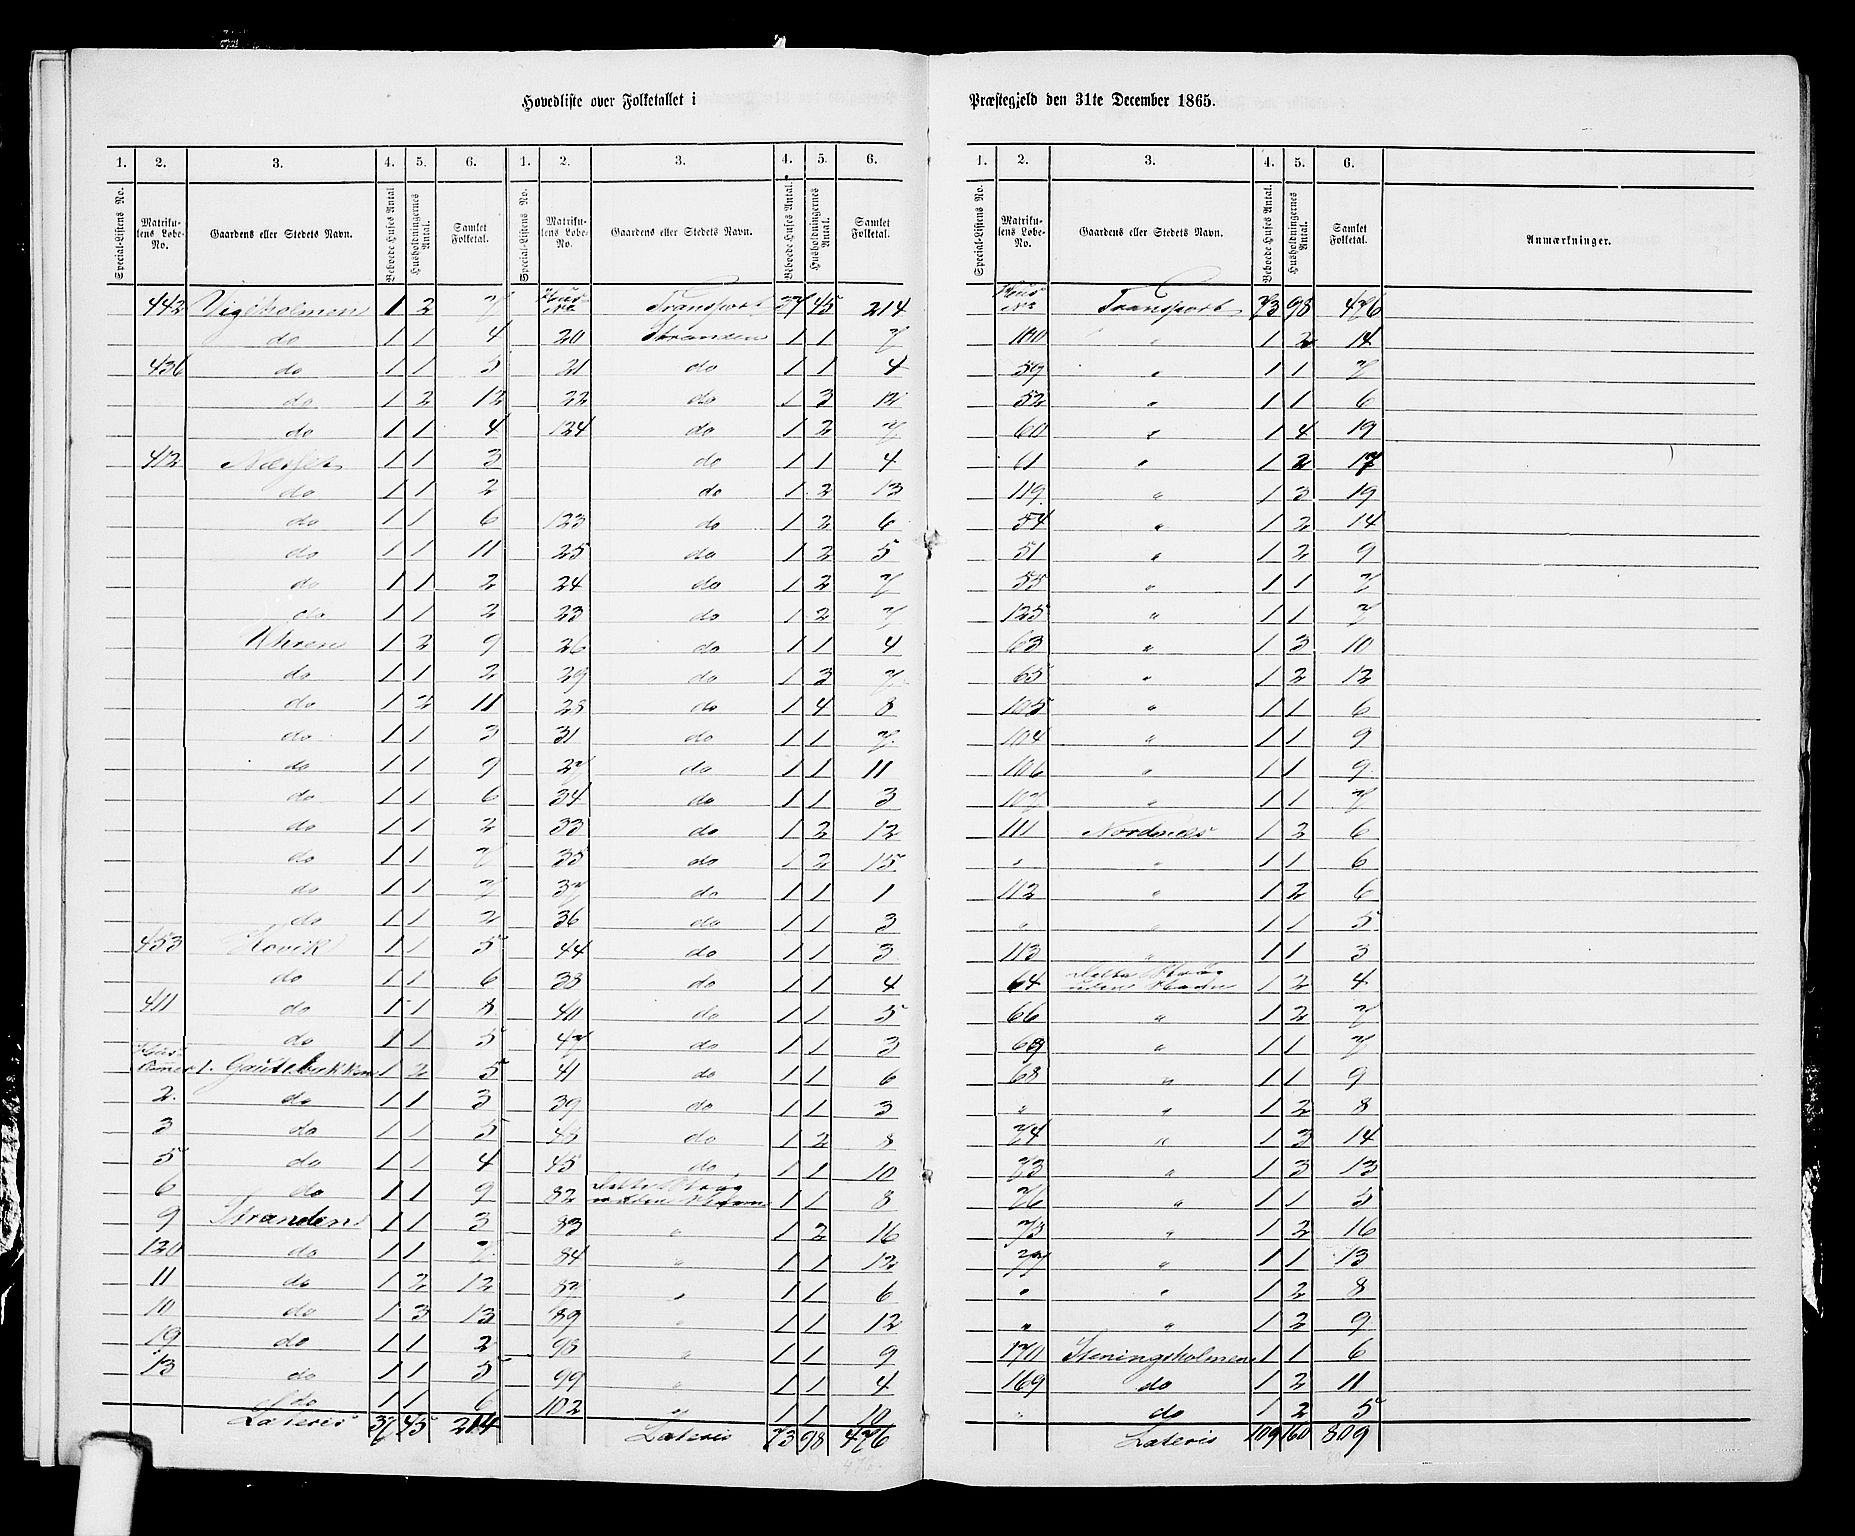 Hovedliste over Folketallet i Præstegjeld den 31te December 1865.
1. 2. 3. 4. 5. 6. 1. 2. 3. 4. 5. 6.
Special-Listens No. Matrikulens Løbe-No. Gaardens eller Stedets Navn. Beboede Huses Antal. Husholdningernes Antal. Samlet Folketal. Special-Listens No. Matrikulens Løbe-No. Gaardens eller Stedets Navn. Beboede Huses Antal. Husholdningernes Antal. Samlet Folketal.
442 Vigeholmen 1 2 7
do 1 1 4
436 do 1 1 5
do 1 2 12
do 1 1 4
412 1 1 3
do 1 1 2
do 1 1 6
do 1 1 11
do 1 1 2
do 1 1 2
1 2 9
do 1 1 2
do 1 2 11
do 1 1 3
do 1 1 9
do 1 1 6
do 1 1 2
do 1 1 7
do 1 1 7
do 1 1 2
453 Hovik 1 1 5
do 1 1 6
411 do 1 1 8
do 1 1 5
1. 1 2 5
2. do 1 1 3
3 do 1 1 5
5 do 1 1 4
6 do 1 1 9
9 Stranden 1 1 3
120 do 1 1 7
11 do 1 2 12
10 do 1 3 13
19 do 1 1 2
13 do 1 1 5
do 1 1 6
Lateris 37 45 214
Hus No Transport 37 45 214
20 Stranden 1 1 7
21 do 1 1 4
22 do 1 3 12
124 do 1 2 7
do 1 1 4
do 1 2 13
123 do 1 2 6
25 do 1 2 5
24 do 1 2 7
23 do 1 2 7
26 do 1 1 4
29 do 1 3 7
28 do 1 4 8
31 do 1 1 7
27 do 1 1 11
34 do 1 1 3
33 do 1 2 12
35 do 1 2 15
37 do 1 1 1
36 do 1 1 3
44 do 1 1 3
38 do 1 1 4
40 do 1 1 5
47 do 1 1 3
41 do 1 1 6
39 do 1 1 3
43 do 1 2 8
45 do 1 1 10
82 1 1 8
83 " 1 2 16
84 " 1 1 12
82 " 1 1 6
89 " 1 1 12
98 " 1 1 9
99 " 1 1 4
102 " 1 1 10
Lateris 73 98 476
476
1. 2. 3. 4. 5. 6.
Special-Listens No. Matrikulens Løbe-No. Gaardens eller Stedets Navn. Beboede Huses Antal. Husholdningernes Antal. Samlet Folketal. Anmærkninger.
Hus No Transport 73 98 476
100 " 1 2 14
59 " 1 1 7
52 " 1 1 6
60 " 1 4 19
61 " 1 2 17
119 " 1 3 19
54 " 1 2 14
51 " 1 2 9
55 " 1 1 7
125 " 1 1 7
63 " 1 3 10
65 " 1 2 12
105 " 1 1 6
104 " 1 1 9
106 " 1 1 9
107 " 1 1 7
111 Nordnes 1 2 6
" " 1 1 6
112 " 1 2 6
" " 1 1 5
113 " 1 1 3
64 1 2 4
66 " 1 2 7
69 " 1 1 7
68 " 1 1 9
" " 1 2 8
74 " 1 3 14
73 " 1 3 13
76 " 1 1 5
75 " 1 2 16
77 " 1 1 13
" " 1 2 8
" " 1 2 9
170 Steningsholmen 1 1 6
169 do 1 2 11
" do 1 2 5
Lateris 109 160 809